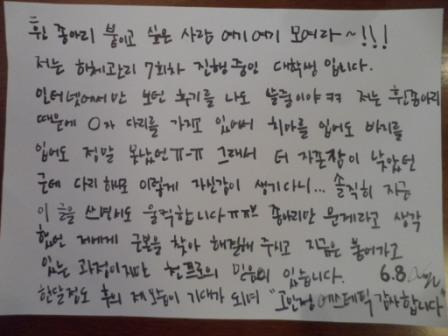 휜 종아리 붙이고 싶은 사람 여기 여기 모여라~!!!
저는 하체관리 7회차 진행중인 대학생 입니다.
인터넷에서만 보던 후기를 나도 쓸줄이야ㅋㅋ 저는 휜종아리
때문에 O자 다리를 가지고 있어서 치마를 입어도 바지를
입어도 정말 못났던ㅠ-ㅠ 그래서 더 자존감이 낮았던
근데 다리 해도 이렇게 자신감이 생기다니... 솔직히 지금
이 글을 쓰면서도 울컥합니다ㅠㅠ 종아리만 문제라고 생각
했던 저에게 근본을 찾아 해결해 주시고 지금은 붙어가고
있는 과정이지만 믿음이 있습니다. 6.8
한달정도 후의 제모습이 기대가 되며 "고안정 에스테틱 감사합니다"